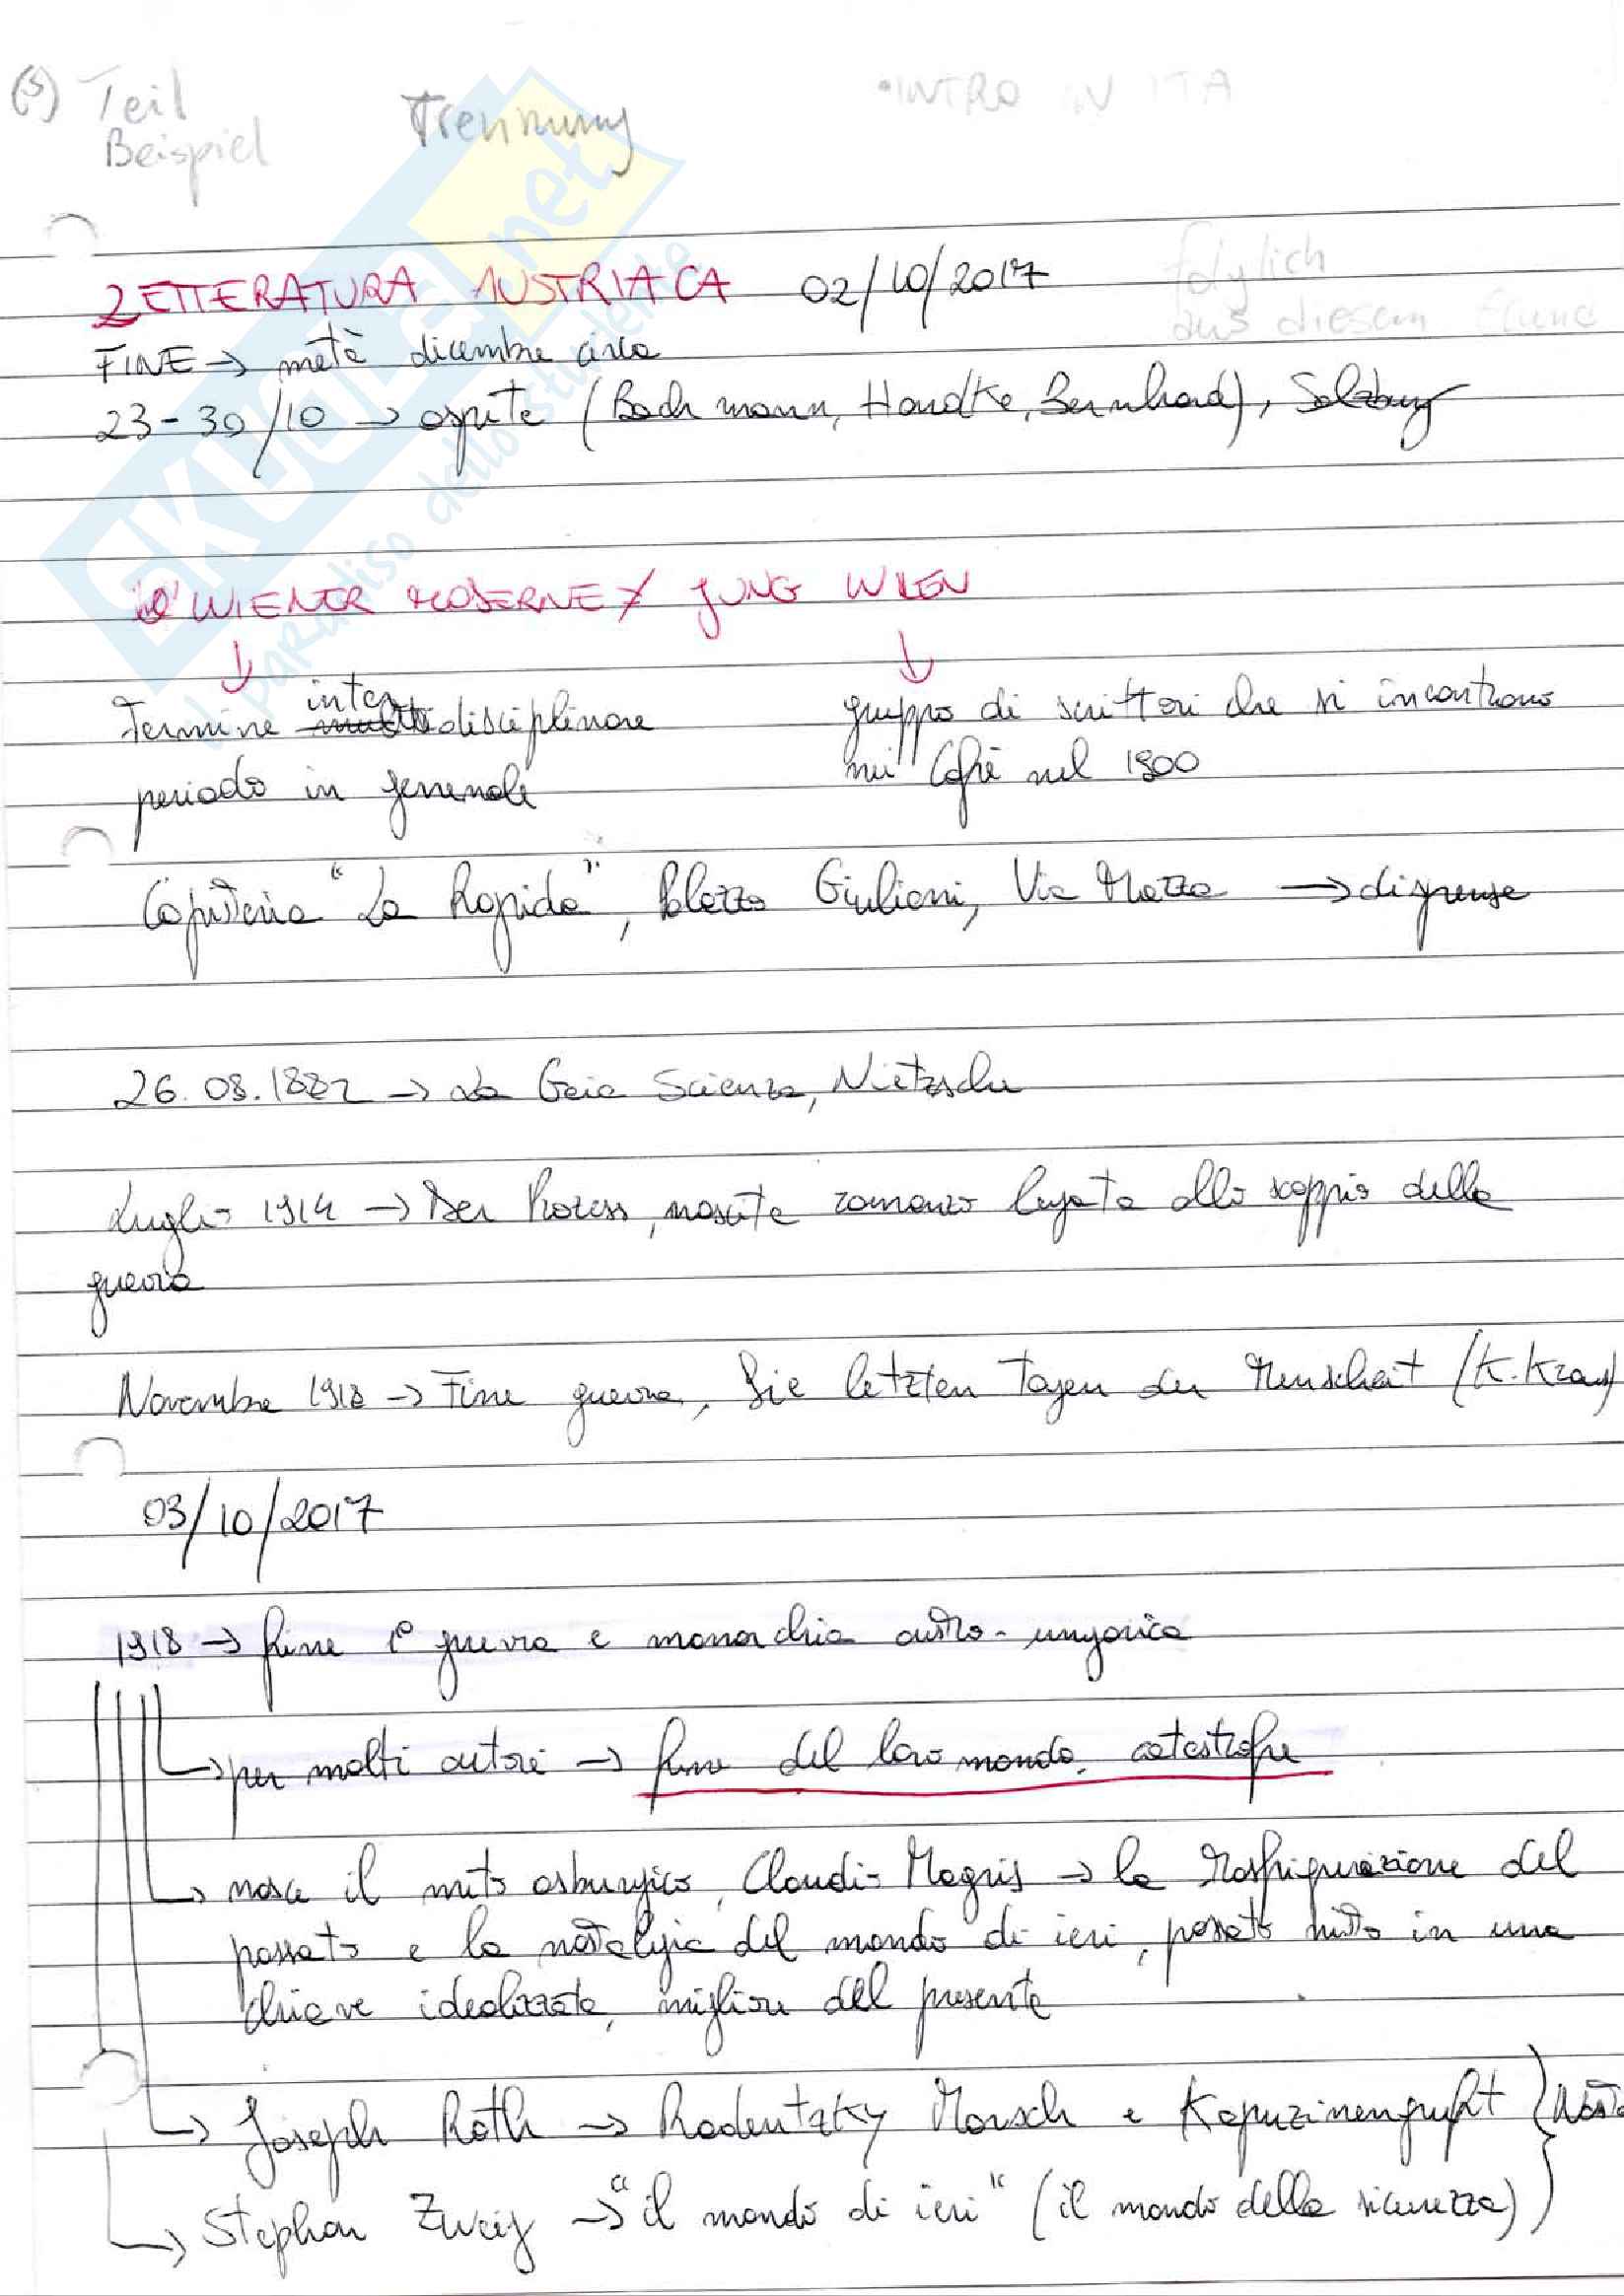 (S) Teil
Beispiel
Trennung
•INTRO IN ITA
folglich
aus diesem Grund
LETTERATURA AUSTRIACA 02/10/2017
FINE → metà dicembre circa
23-30/10 → ospite (Bachmann, Handke, Bernhard), Salzburg
WIENER MODERNE ≠ JUNG WIEN
↓ ↓
Termine interdisciplinare
periodo in generale
gruppo di scrittori che si incontrano
nei Cafè nel 1900
Copisteria "La Rapida", Palazzo Giuliani, Via Mazza → dispense
26.08.1882 → La Gaia Scienza, Nietzsche
Luglio 1914 → Der Prozess, nascita romanzo legata allo scoppio della
guerra
Novembre 1918 → Fine guerra, Die letzten Tagen der Menscheit (K. Kraus)
03/10/2017
1918 → fine 1° guerra e monarchia austro-ungarica
→ per molti autori → fine del loro mondo, catastrofe
→ nasce il mito asburgico, Claudio Magris → la trasfigurazione del
passato e la nostalgia del mondo di ieri, passato visto in una
chiave idealizzata, migliore del presente
→ Joseph Roth → Radentzky Marsch e Kapuzinengruft
→ Stephan Zweig → "il mondo di ieri" (il mondo della sicurezza)
SKUOLA.net
il paradiso dello studente